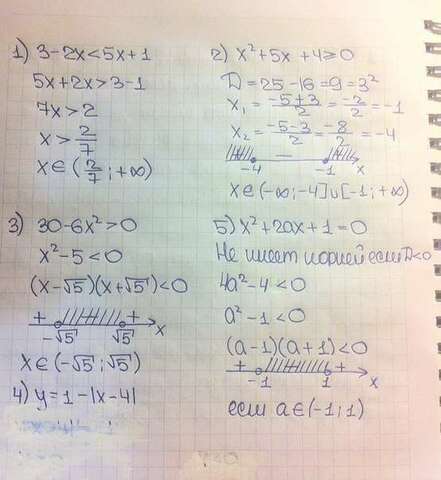 1) 3-2x<5x+1
5x+2x>3-1
7x>2
x>2/7
x∈(2/7;+∞)
2) x²+5x+4≥0
D=25-16=9=3²
x₁=(-5+3)/2=-2/2=-1
x₂=(-5-3)/2=-8/2=-4
-4 - -1 x
x∈(-∞;-4]∪[-1;+∞)
3) 30-6x²>0
x²-5<0
(x-√5)(x+√5)<0
+ +
-√5 √5 x
x∈(-√5;√5)
4) y=1-|x-4|
5) x²+2ax+1=0
Не имеет корней если D<0
4a²-4<0
a²-1<0
(a-1)(a+1)<0
+ +
-1 1 x
если a∈(-1;1)